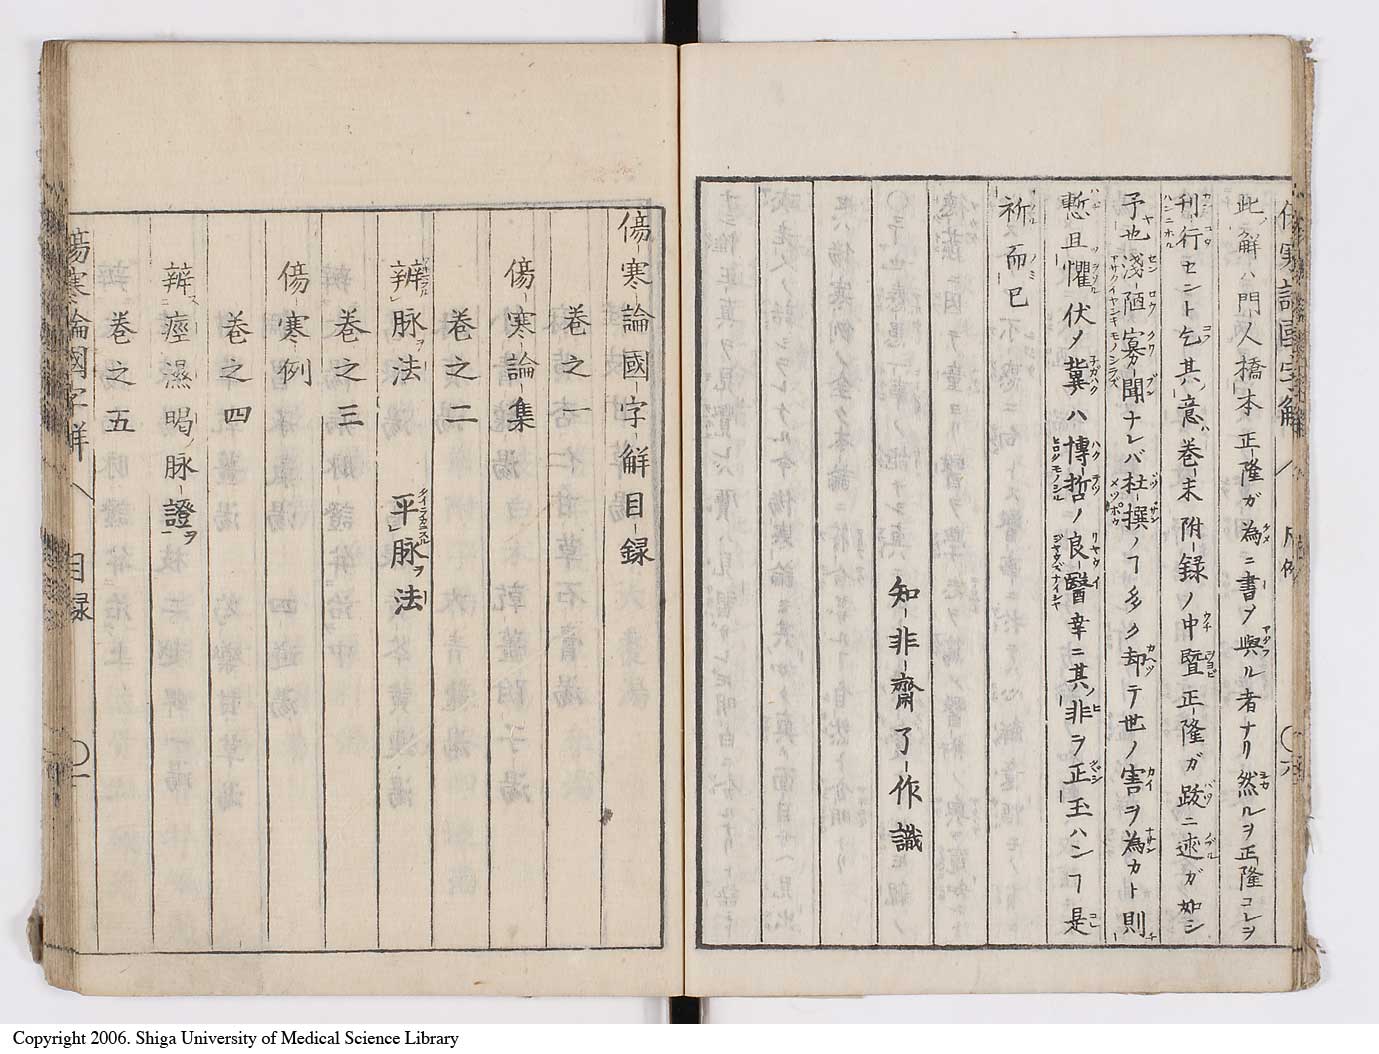 此ノ解ハ門人橋本正隆ガ為ニ書ヲ與ル者ナリ然ルヲ正隆コレヲ
刊行セント乞其意巻末附録ノ中曁正隆ガ跋ニ述ガ如シ
予也淺陋寡聞ナレバ杜撰ノヿ多ク却テ世ノ害ヲ為カト則
慙且懼伏メ冀ハ博哲ノ良醫幸ニ其非ヲ正玉ハンヿ是
祈而已
知非齋了作識
傷寒論國字解目録
巻之一
傷寒論集
巻之二
辨脉法 平脉法
巻之三
傷寒例
巻之四
辨痙濕暍脉證
巻之五
傷寒論國字解 目録 〇一
Copyright 2006. Shiga University of Medical Science Library